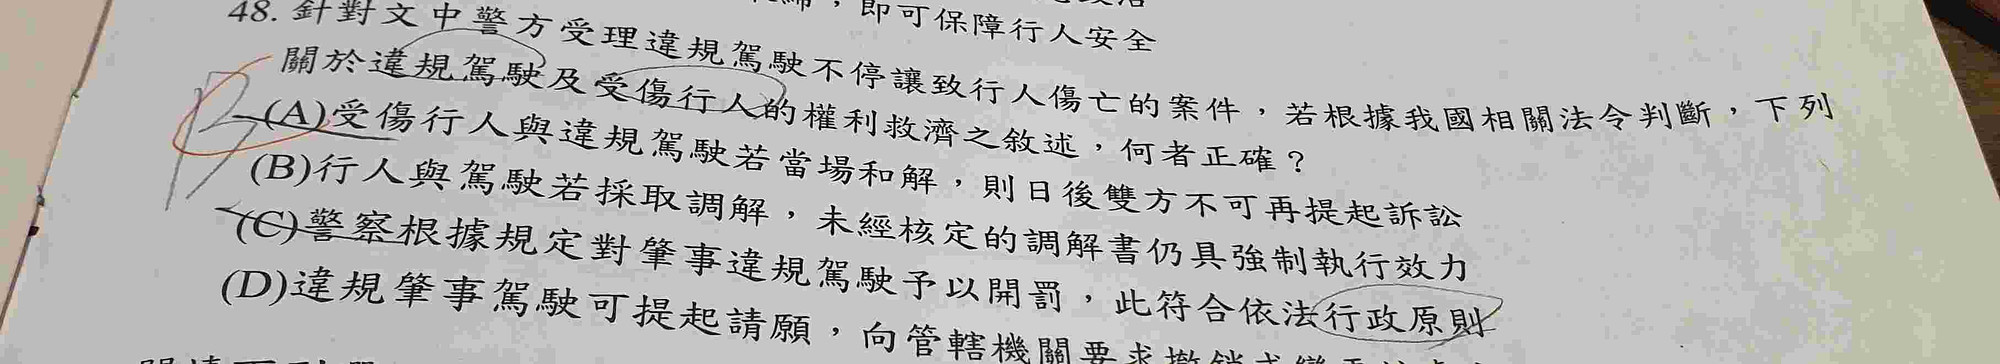 即可保障行人安全
48. 針對文中警方受理違規駕駛不停讓致行人傷亡的案件，若根據我國相關法令判斷，下列
關於違規駕駛及受傷行人的權利救濟之敘述，何者正確？
(A)受傷行人與違規駕駛若當場和解，則日後雙方不可再提起訴訟
(B)行人與駕駛若採取調解，未經核定的調解書仍具強制執行效力
(C)警察根據規定對肇事違規駕駛予以開罰，此符合依法行政原則
(D)違規肇事駕駛可提起請願，向管轄機關要求撤銷或變更